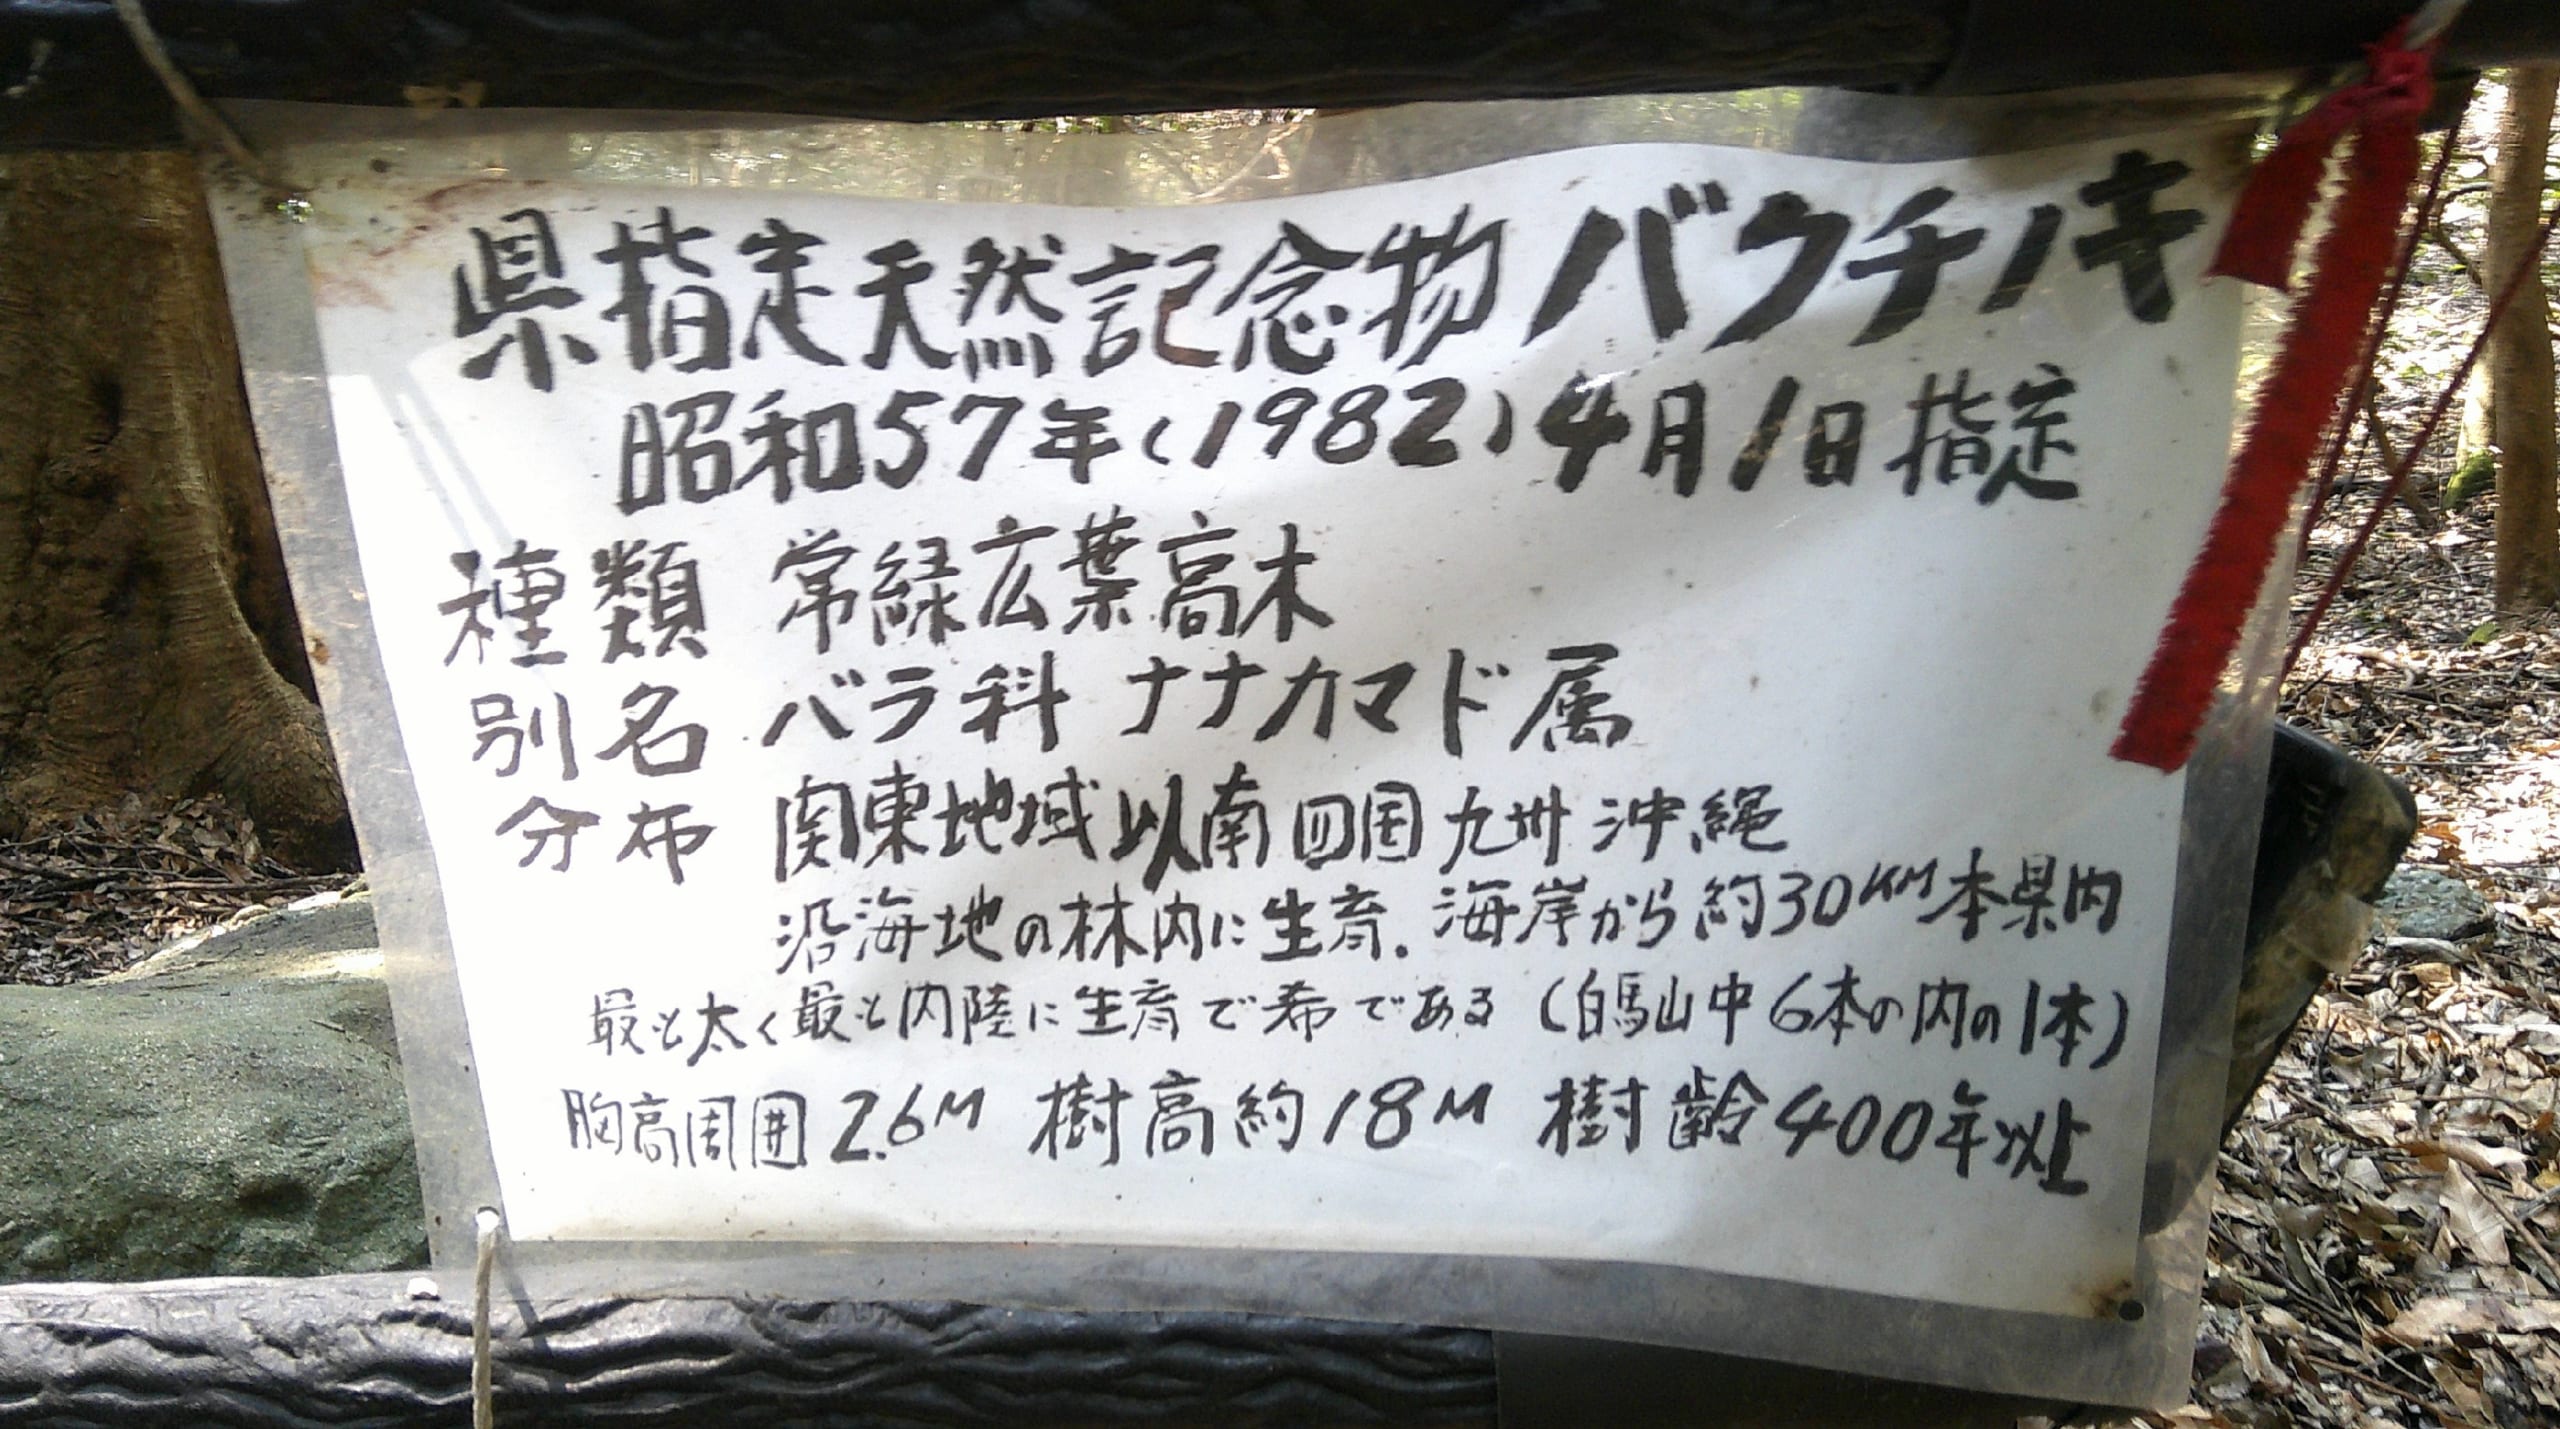 県指定天然記念物 バクチノキ
昭和57年(1982)4月1日指定
種類 常緑広葉高木
別名 バラ科 ナナカマド属
分布 関東地域以南 四国 九州 沖縄
沿海地の林内に生育. 海岸から約30KM本県内
最も太く最も内陸に生育で希である (白馬山中6本の内の1本)
胸高周囲2.6M 樹高約18M 樹齢400年以上